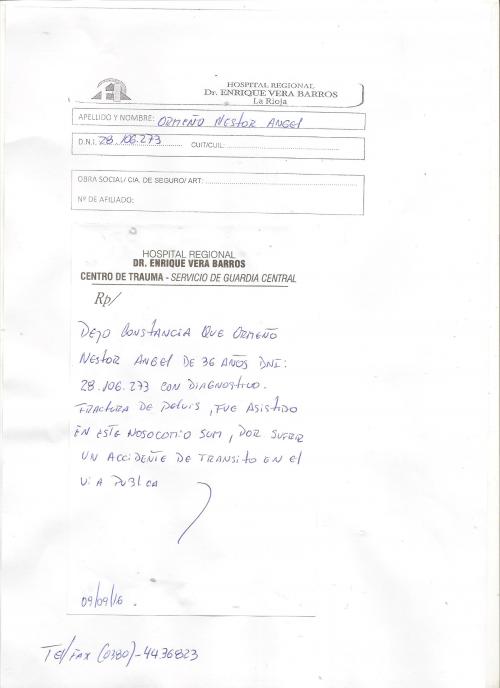 HOSPITAL REGIONAL
Dr. ENRIQUE VERA BARROS
La Rioja
APELLIDO Y NOMBRE: ORMEÑO NESTOR ANGEL
D.N.I. 28.106.273 CUIT/CUIL:
OBRA SOCIAL/ CIA. DE SEGURO/ ART:
Nº DE AFILIADO:
HOSPITAL REGIONAL
DR. ENRIQUE VERA BARROS
CENTRO DE TRAUMA - SERVICIO DE GUARDIA CENTRAL
Rp/
DEJO CONSTANCIA QUE ORMEÑO
NESTOR ANGEL DE 36 AÑOS DNI:
28.106.273 CON DIAGNOSTICO.
FRACTURA DE PELVIS, FUE ASISTIDO
EN ESTE NOSOCOMIO SUM, POR SUFRIR
UN ACCIDENTE DE TRANSITO EN EL
VIA PUBLCA
09/09/16.
TEL/FAX (0380)-4436823